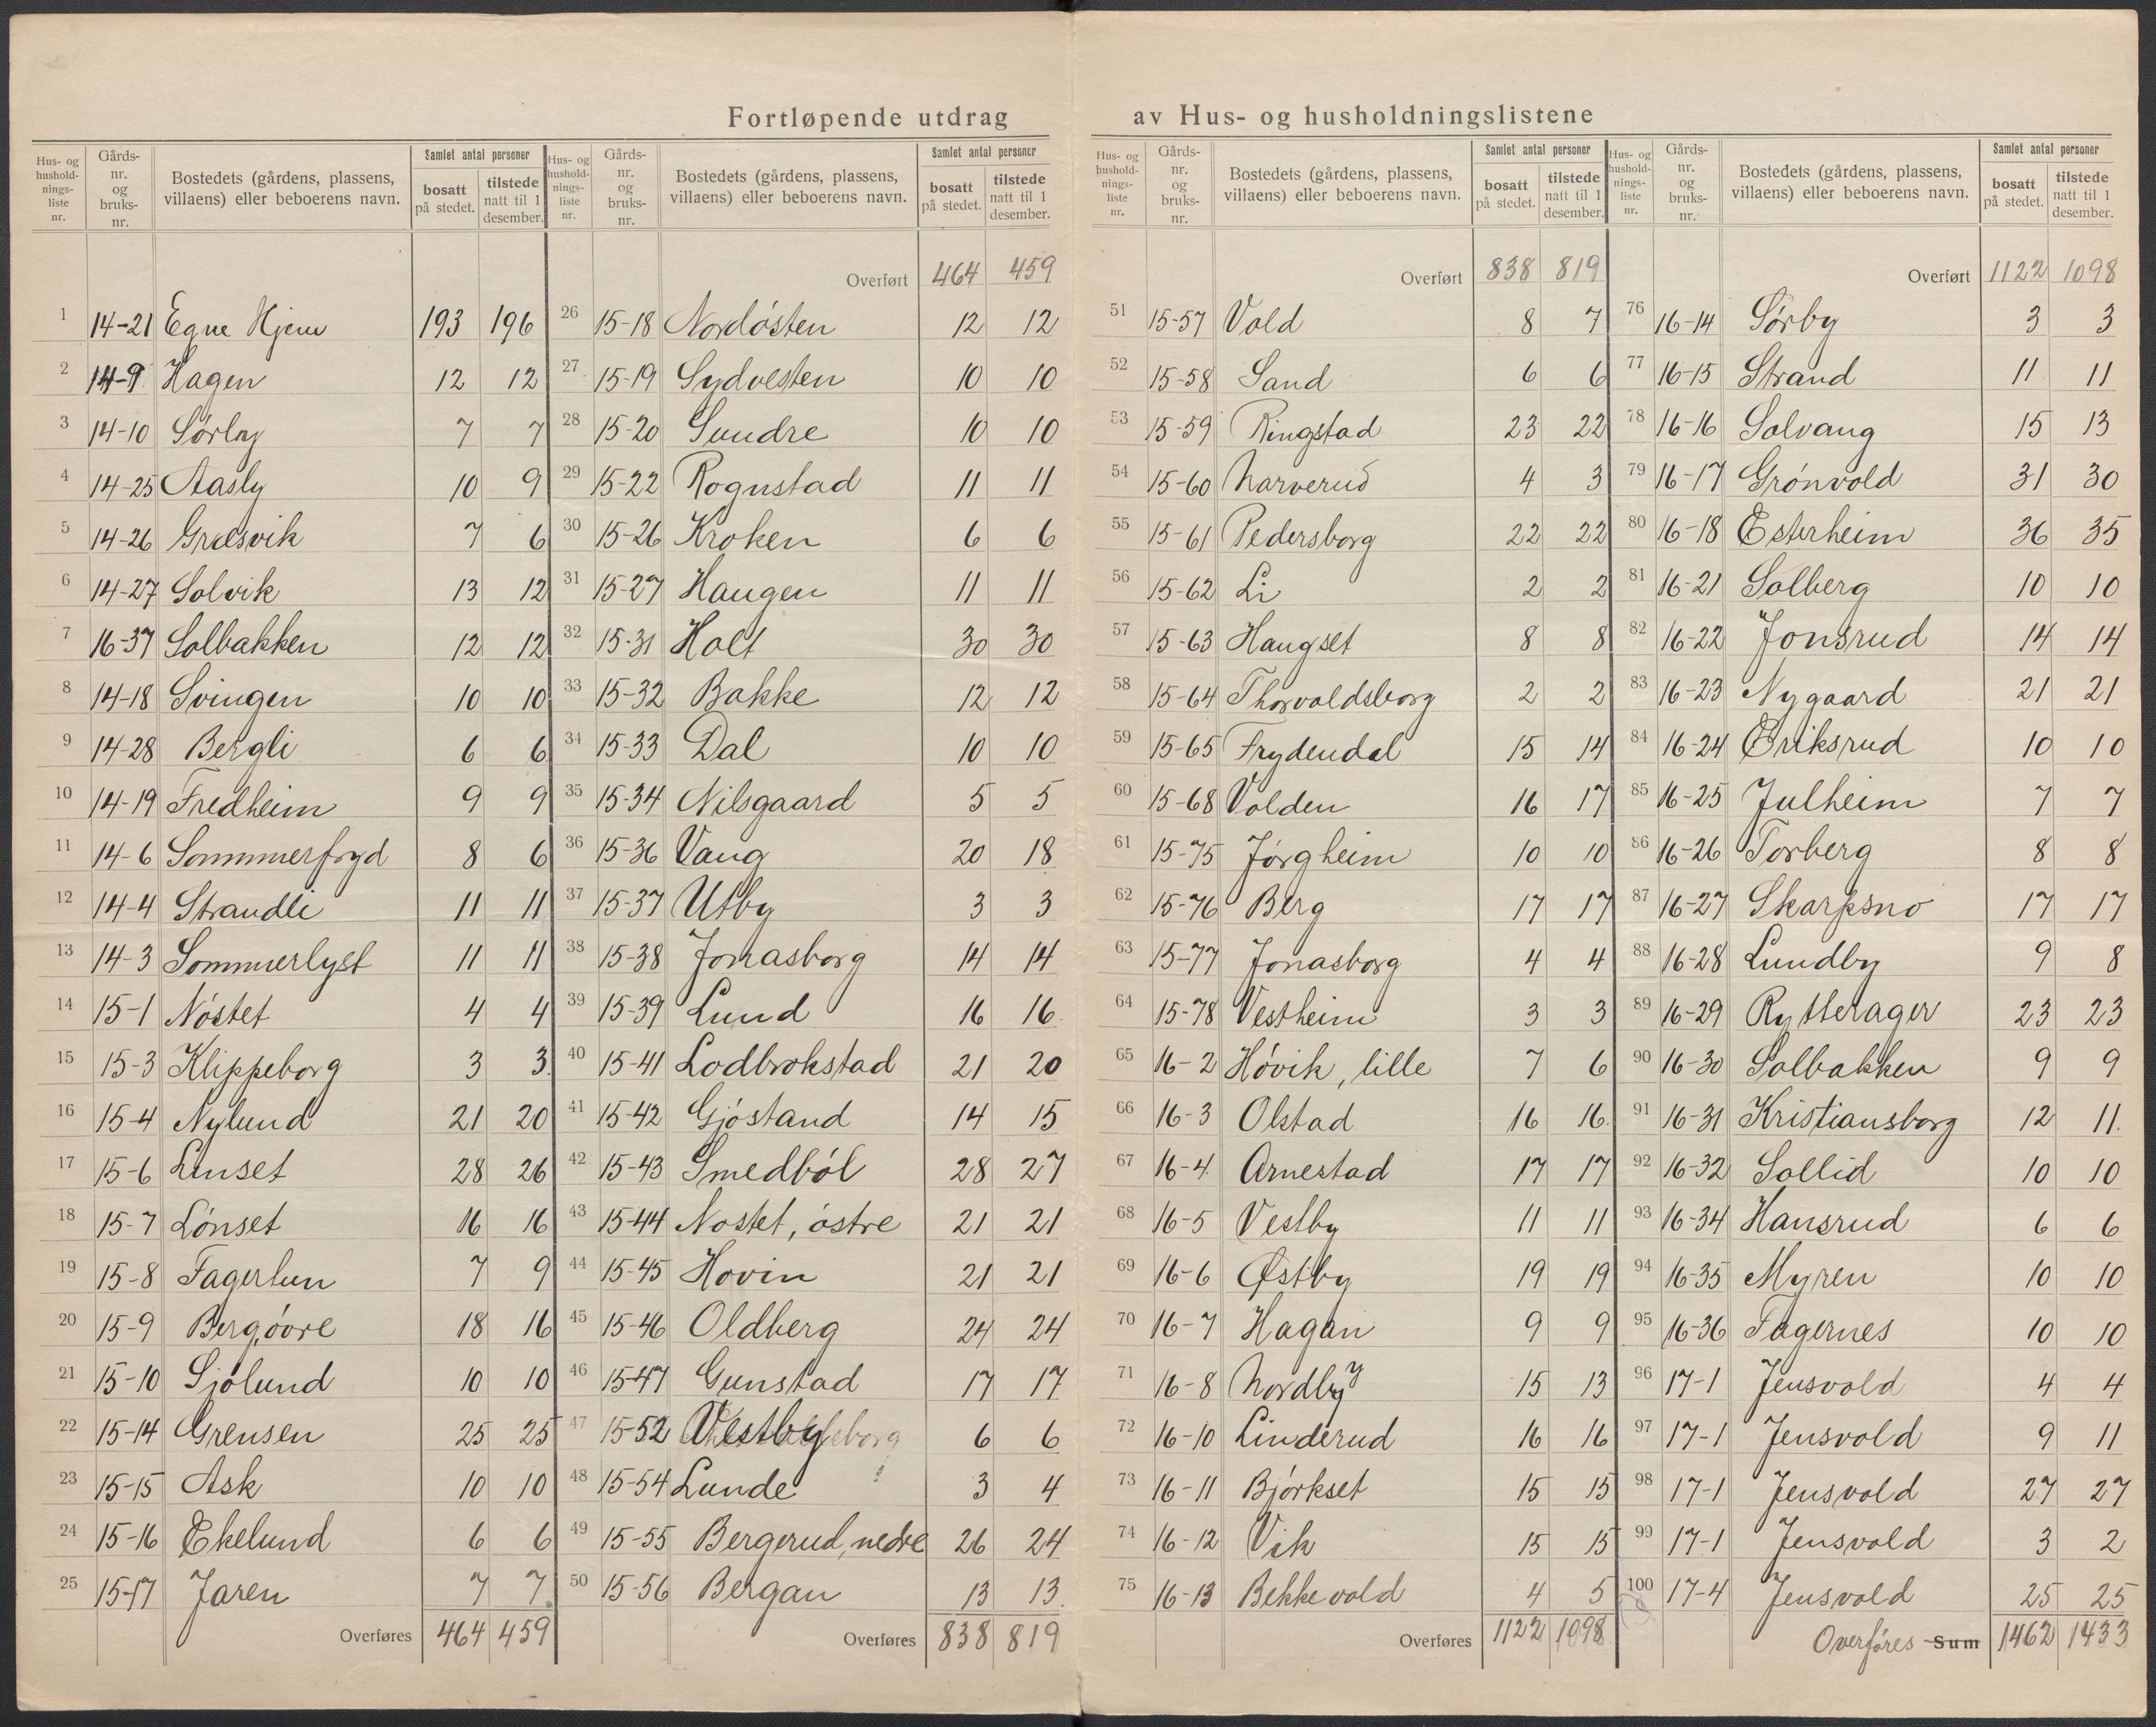 Fortløpende utdrag av Hus- og husholdningslistene
Hus- og hushold-nings-liste nr. Gårds-nr. og bruks-nr. Bostedets (gårdens, plassens, villaens) eller beboerens navn. Samlet antal personer bosatt på stedet. tilstede natt til 1 desember.
1 14-21 Egne Hjem 193 196
2 14-9 Hagen 12 12
3 14-10 Sørby 7 7
4 14-25 Aasly 10 9
5 14-26 Græsvik 7 6
6 14-27 Solvik 13 12
7 16-37 Solbakken 12 12
8 14-18 Svingen 10 10
9 14-28 Bergli 6 6
10 14-19 Fredheim 9 9
11 14-6 Sommmerfryd 8 6
12 14-4 Strandli 11 11
13 14-3 Sommerlyst 11 11
14 15-1 Nöstet 4 4
15 15-3 Klippeborg 3 3
16 15-4 Nylund 21 20
17 15-6 Linset 28 26
18 15-7 Lönset 16 16
19 15-8 Fagerlun 7 9
20 15-9 Berg, övre 18 16
21 15-10 Sjölund 10 10
22 15-14 Grensen 25 25
23 15-15 Ask 10 10
24 15-16 Ekelund 6 6
25 15-17 Jaren 7 7
Overføres 464 459
Hus- og hushold-nings-liste nr. Gårds-nr. og bruks-nr. Bostedets (gårdens, plassens, villaens) eller beboerens navn. Samlet antal personer bosatt på stedet. tilstede natt til 1 desember.
Overført 464 459
26 15-18 Nordösten 12 12
27 15-19 Sydvesten 10 10
28 15-20 Sundre 10 10
29 15-22 Rognstad 11 11
30 15-26 Kroken 6 6
31 15-27 Haugen 11 11
32 15-31 Holt 30 30
33 15-32 Bakke 12 12
34 15-33 Dal 10 10
35 15-34 Nilsgaard 5 5
36 15-36 Vang 20 18
37 15-37 Utby 3 3
38 15-38 Jonasborg 14 14
39 15-39 Lund 16 16
40 15-41 Lodbrokstad 21 20
41 15-42 Gjöstand 14 15
42 15-43 Smedböl 28 27
43 15-44 Nostet, östre 21 21
44 15-45 Hovin 21 21
45 15-46 Oldberg 24 24
46 15-47 Gunstad 17 17
47 15-52 Vestby 6 6
48 15-54 Lunde 3 4
49 15-55 Bergerud, nedre 26 24
50 15-56 Bergan 13 13
Overføres 838 819
Hus- og hushold-nings-liste nr. Gårds-nr. og bruks-nr. Bostedets (gårdens, plassens, villaens) eller beboerens navn. Samlet antal personer bosatt på stedet. tilstede natt til 1 desember.
Overført 838 819
51 15-57 Vold 8 7
52 15-58 Sand 6 6
53 15-59 Ringstad 23 22
54 15-60 Narverud 4 3
55 15-61 Pedersborg 22 22
56 15-62 Li 2 2
57 15-63 Haugset 8 8
58 15-64 Thorvaldsborg 2 2
59 15-65 Frydendal 15 14
60 15-68 Volden 16 17
61 15-75 Jörgheim 10 10
62 15-76 Berg 17 17
63 15-77 Jonasborg 4 4
64 15-78 Vestheim 3 3
65 16-2 Hövik, lille 7 6
66 16-3 Olstad 16 16
67 16-4 Arnestad 17 17
68 16-5 Vestby 11 11
69 16-6 Østby 19 19
70 16-7 Hagan 9 9
71 16-8 Nordby 15 13
72 16-10 Linderud 16 16
73 16-11 Björkset 15 15
74 16-12 Vik 15 15
75 16-13 Bekkevold 4 5
Overføres 1122 1098
Hus- og hushold-nings-liste nr. Gårds-nr. og bruks-nr. Bostedets (gårdens, plassens, villaens) eller beboerens navn. Samlet antal personer bosatt på stedet. tilstede natt til 1 desember.
Overført 1122 1098
76 16-14 Sørby 3 3
77 16-15 Strand 11 11
78 16-16 Solvang 15 13
79 16-17 Grönvold 31 30
80 16-18 Esterheim 36 35
81 16-21 Solberg 10 10
82 16-22 Jonsrud 14 14
83 16-23 Nygaard 21 21
84 16-24 Eriksrud 10 10
85 16-25 Julheim 7 7
86 16-26 Torberg 8 8
87 16-27 Skarpsno 17 17
88 16-28 Lundby 9 8
89 16-29 Rytterager 23 23
90 16-30 Solbakken 9 9
91 16-31 Kristiansborg 12 11
92 16-32 Sollid 10 10
93 16-34 Hansrud 6 6
94 16-35 Myren 10 10
95 16-36 Fagernes 10 10
96 17-1 Jensvold 4 4
97 17-1 Jensvold 9 11
98 17-1 Jensvold 27 27
99 17-1 Jensvold 3 2
100 17-4 Jensvold 25 25
Overføres Sum 1462 1433